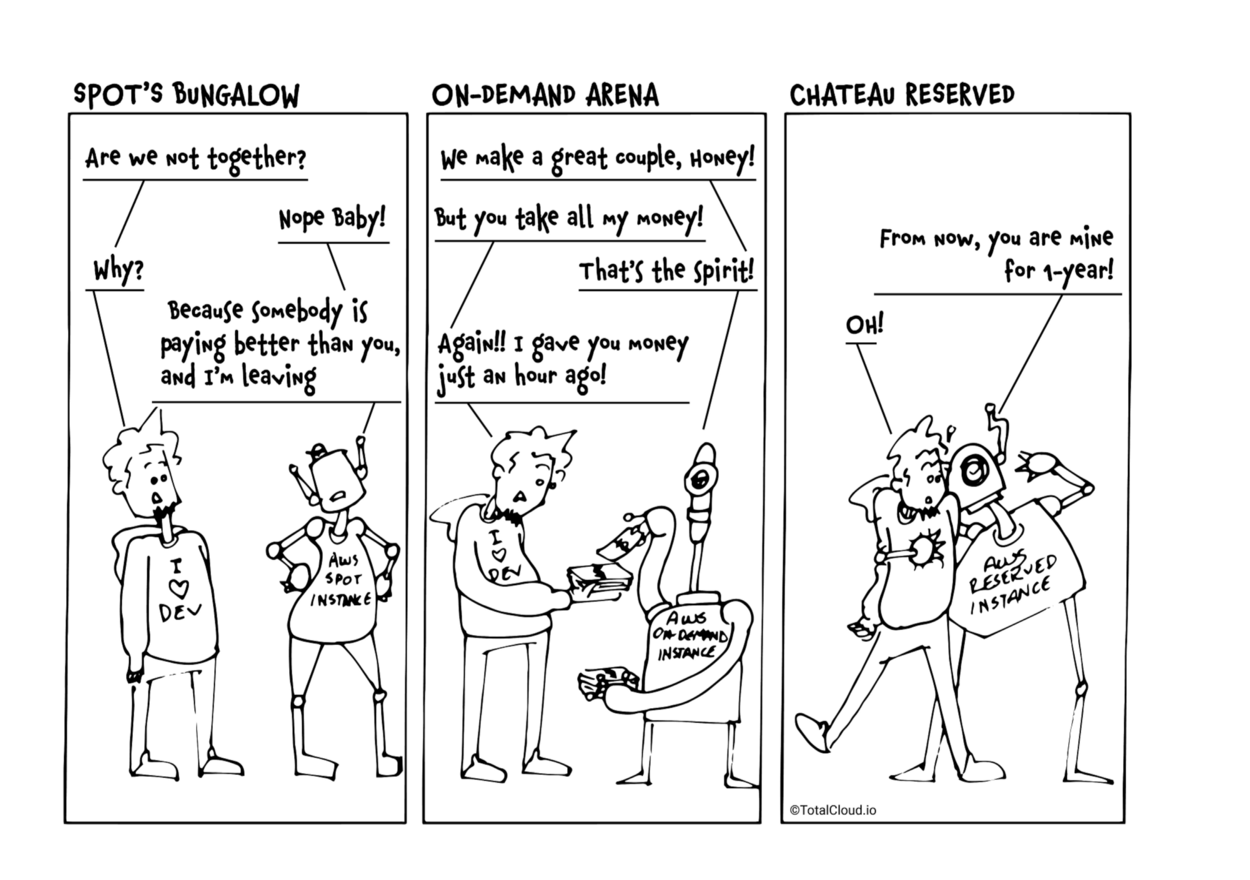 SPOT'S BUNGALOW
Are we not together?
Nope Baby!
Why?
Because somebody is
paying better than you,
and I'm leaving
I
♡
DEV
AWS
SPOT
INSTANCE
ON-DEMAND ARENA
We make a great couple, Honey!
But you take all my money!
That's the Spirit!
Again!! I gave you money
just an hour ago!
I
♡
DEV
AWS
ON-DEMAND
INSTANCE
CHATEAU RESERVED
From now, you are mine
for 1-year!
OH!
AWS
RESERVED
INSTANCE
©TotalCloud.io